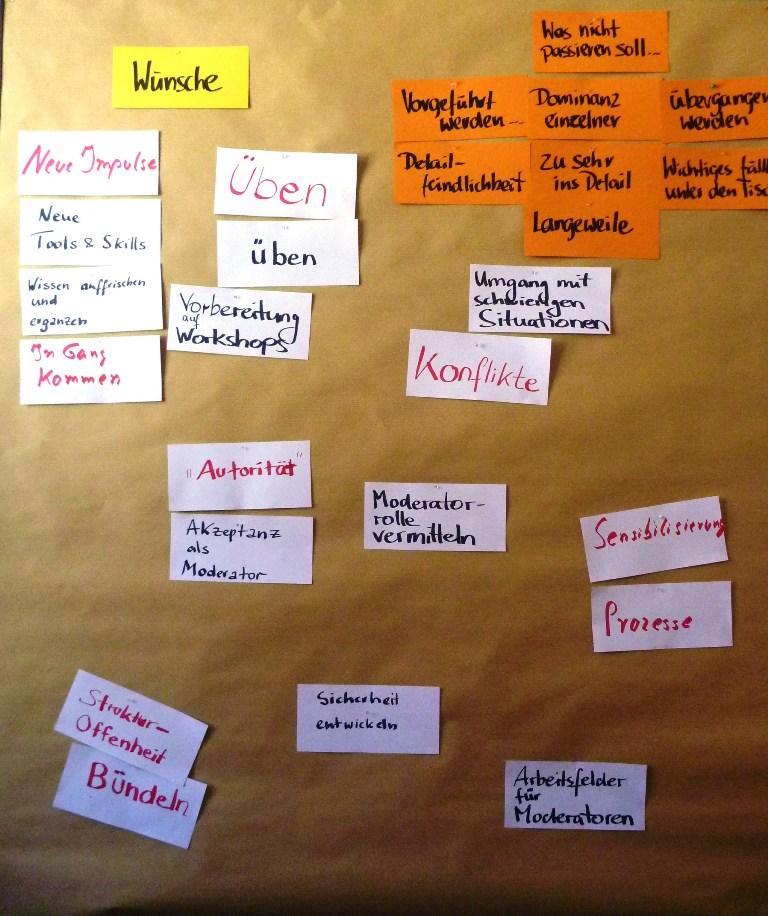 Wünsche
Neue Impulse
Neue
Tools & Skills
Wissen auffrischen
und
ergänzen
In Gang
Kommen
Üben
üben
Vorbereitung
auf
Workshops
Was nicht
passieren soll...
Vorgeführt
werden...
Dominanz
einzelner
übergangen
werden
Detail-
feindlichkeit
zu sehr
ins Detail
Wichtiges fäll
unter den Tisc
Langeweile
Umgang mit
schwierigen
Situationen
Konflikte
"Autorität"
Akzeptanz
als
Moderator
Moderator-
rolle
vermitteln
Sensibilisierung
Prozesse
Struktur-
Offenheit
Bündeln
Sicherheit
entwickeln
Arbeitsfelder
für
Moderatoren